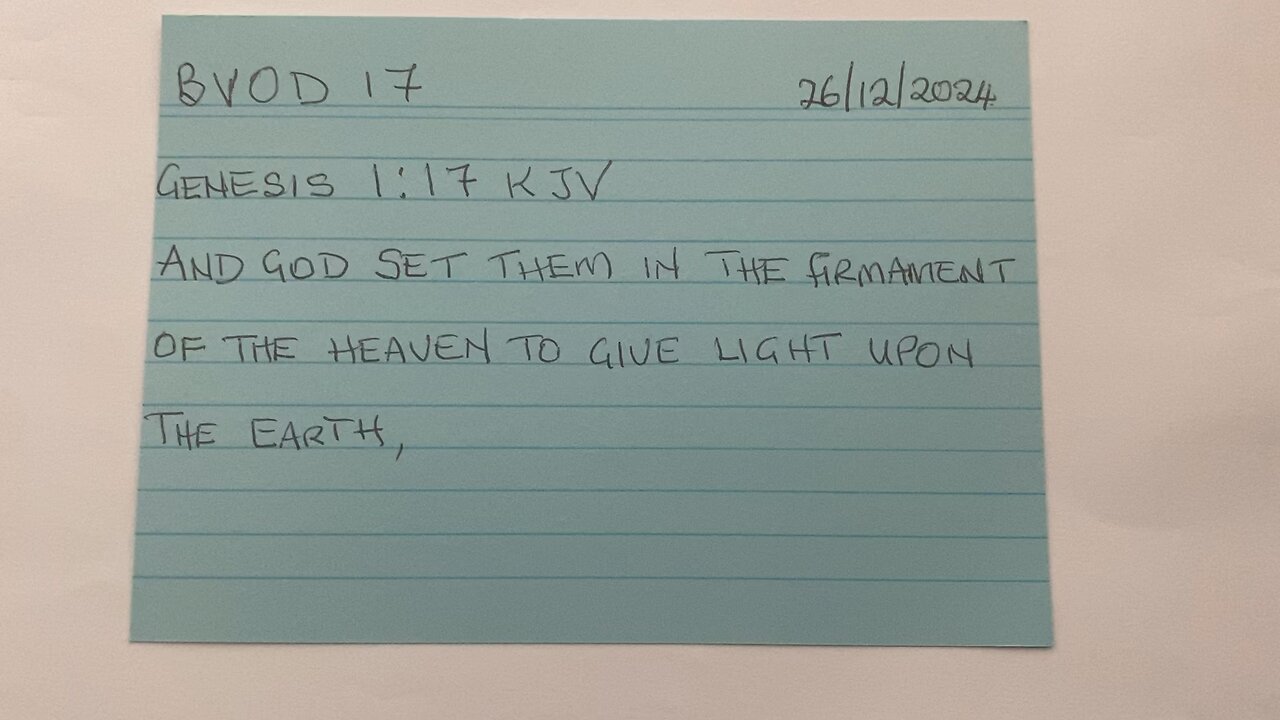 BVOD 17 26/12/2024
GENESIS 1:17 KJV
AND GOD SET THEM IN THE FIRMAMENT
OF THE HEAVEN TO GIVE LIGHT UPON
THE EARTH,